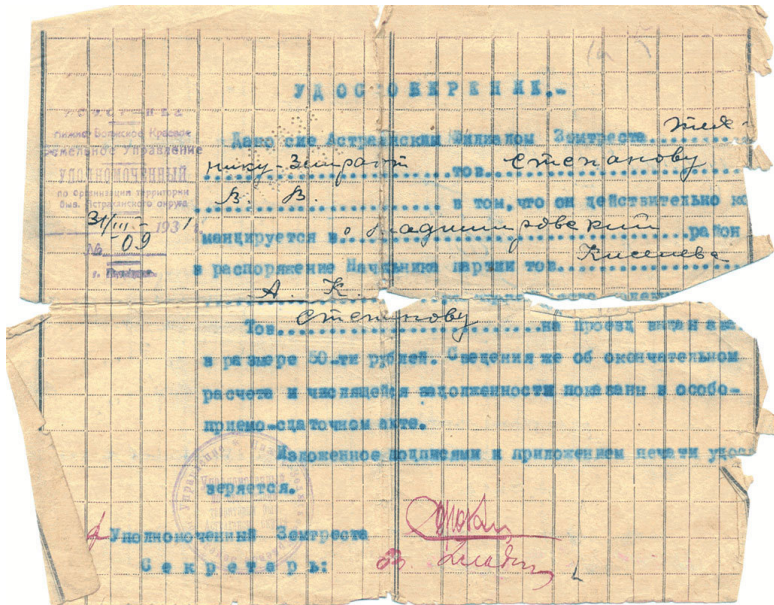 УДОСТОВЕРЕНИЕ.-
Нижне-Волжское Краевое
Земельное Управление
УПОЛНОМОЧЕННЫЙ
по организации территории
быв. Астраханского округа
31/III 1931
№ -09
Дано сие Астраханским Филиалом Земтреста тех-
нику- тов. Степанову
В. В. в том, что он действительно ко
мандируется в Владимировский район
в распоряжение Начальника партии тов. Киселева
А. К.
Тов. Степанову на проезд выдан ава
в размере 50-ти рублей. Сведения же об окончательном
расчете и числящейся задолженности показаны в особо-
приемо-сдаточном акте.
Изложенное подписями и приложением печати удос
веряется.
Уполномоченный Земтреста
Секретарь: